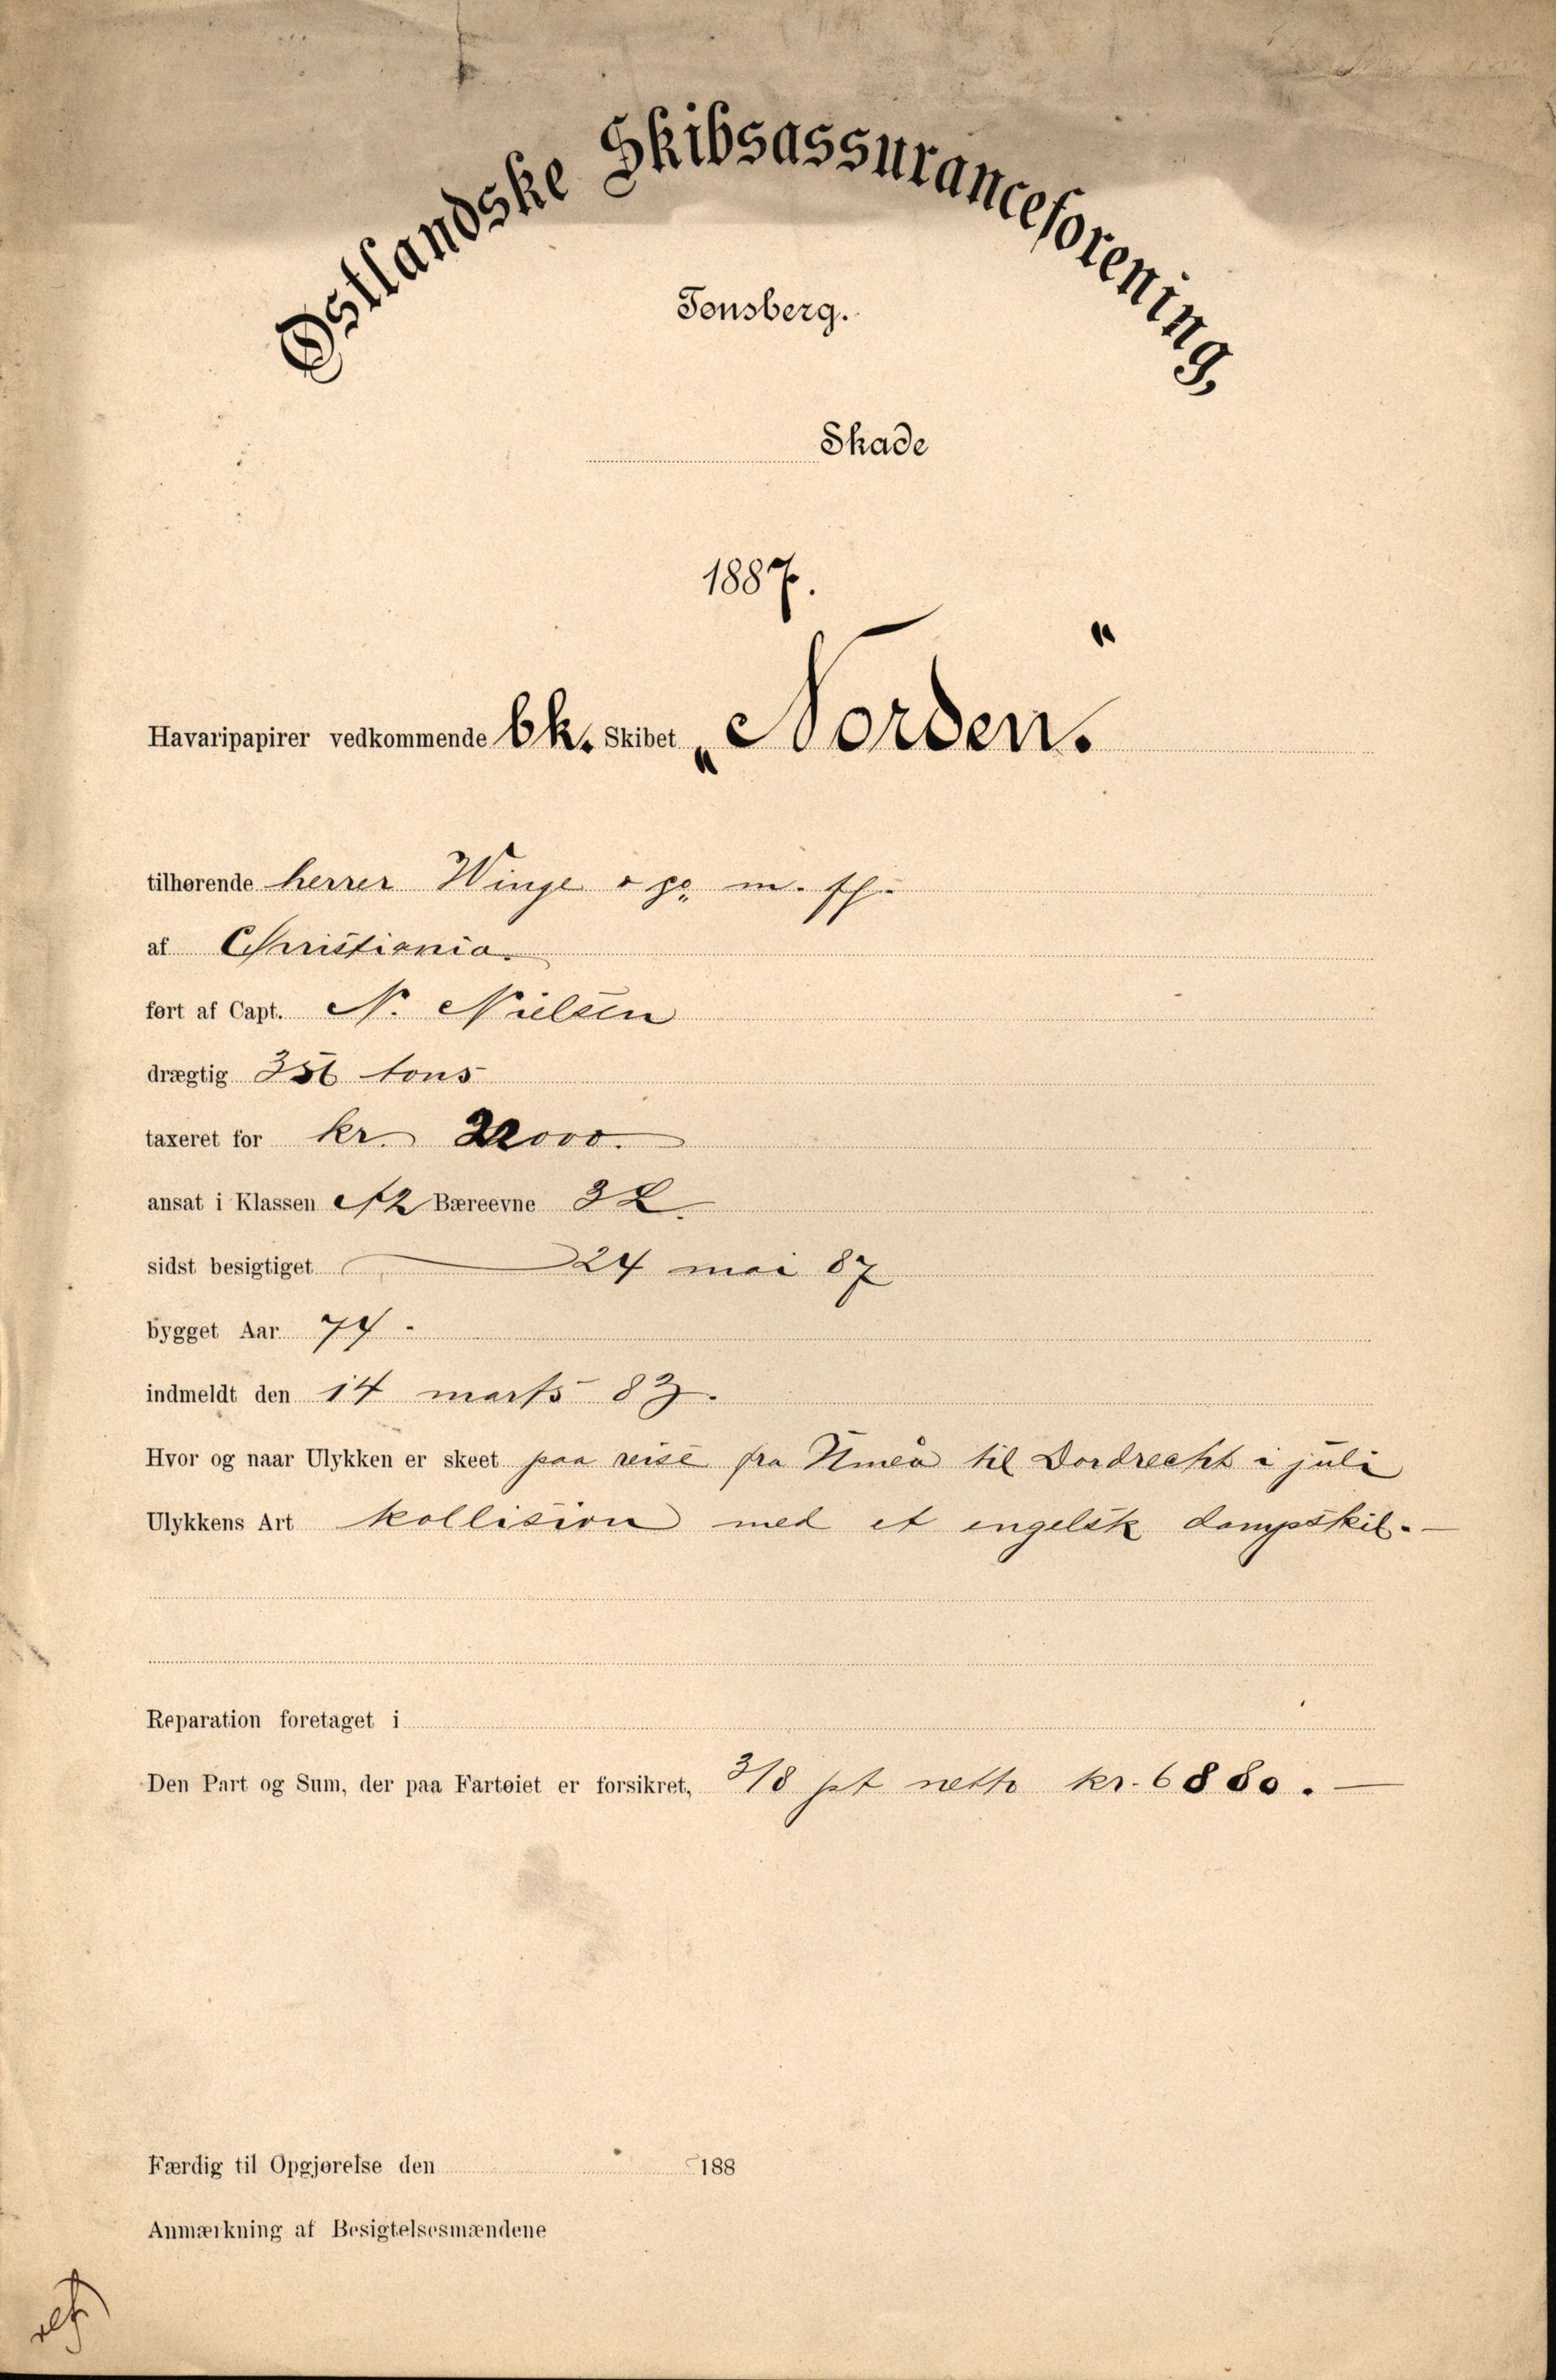 Østlandske Skibsassuranceforening,
Tønsberg.
Skade
1887.
Havaripapirer vedkommende bk. Skibet „Norden."
tilhørende herrer Winge & Co. m. fl.
af Christiania
ført af Capt. N. Nielsen
drægtig 356 tons
taxeret for kr. 22000.
ansat i Klassen A2 Bæreevne 3L
sidst besigtiget 24 mai 87
bygget Aar 74.
indmeldt den 14 marts 83.
Hvor og naar Ulykken er skeet paa reise fra Umeå til Dordrecht i juli
Ulykkens Art kollision med et engelsk dampskib.
Reparation foretaget i
Den Part og Sum, der paa Fartøiet er forsikret, 3/8 pt netto kr. 6880.
Færdig til Opgjørelse den 188
Anmærkning af Besigtelsesmændene